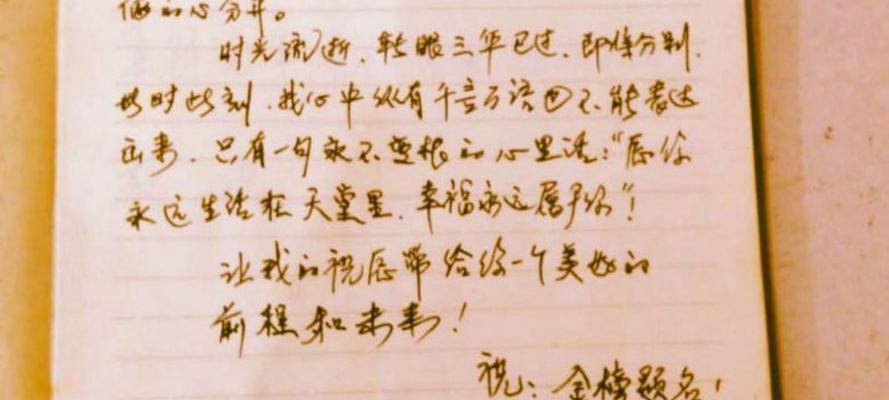 的心分开。
时光流逝，转眼三年已过，即将分别，
此时此刻，我心中纵有千言万语也不能表达
出来，只有一句永不变根的心里话：“愿你
永远生活在天堂里，幸福永远属于你”！
让我的祝愿带给你一个美好的
前程和未来！
祝：金榜题名！